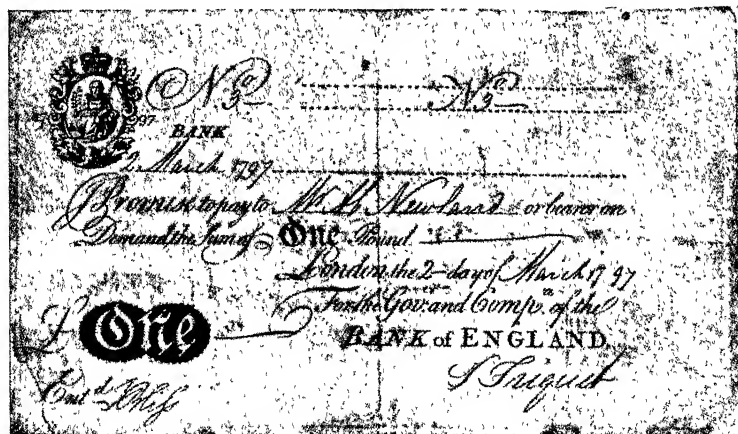 No 3 No 3
BANK
2 March 1797
I Promise to pay to Mr Ab Newland or bearer on
Demand the Sum of One Pound
London the 2 day of March 1797
For the Govr and Compa of the
£ One
BANK of ENGLAND
Entd